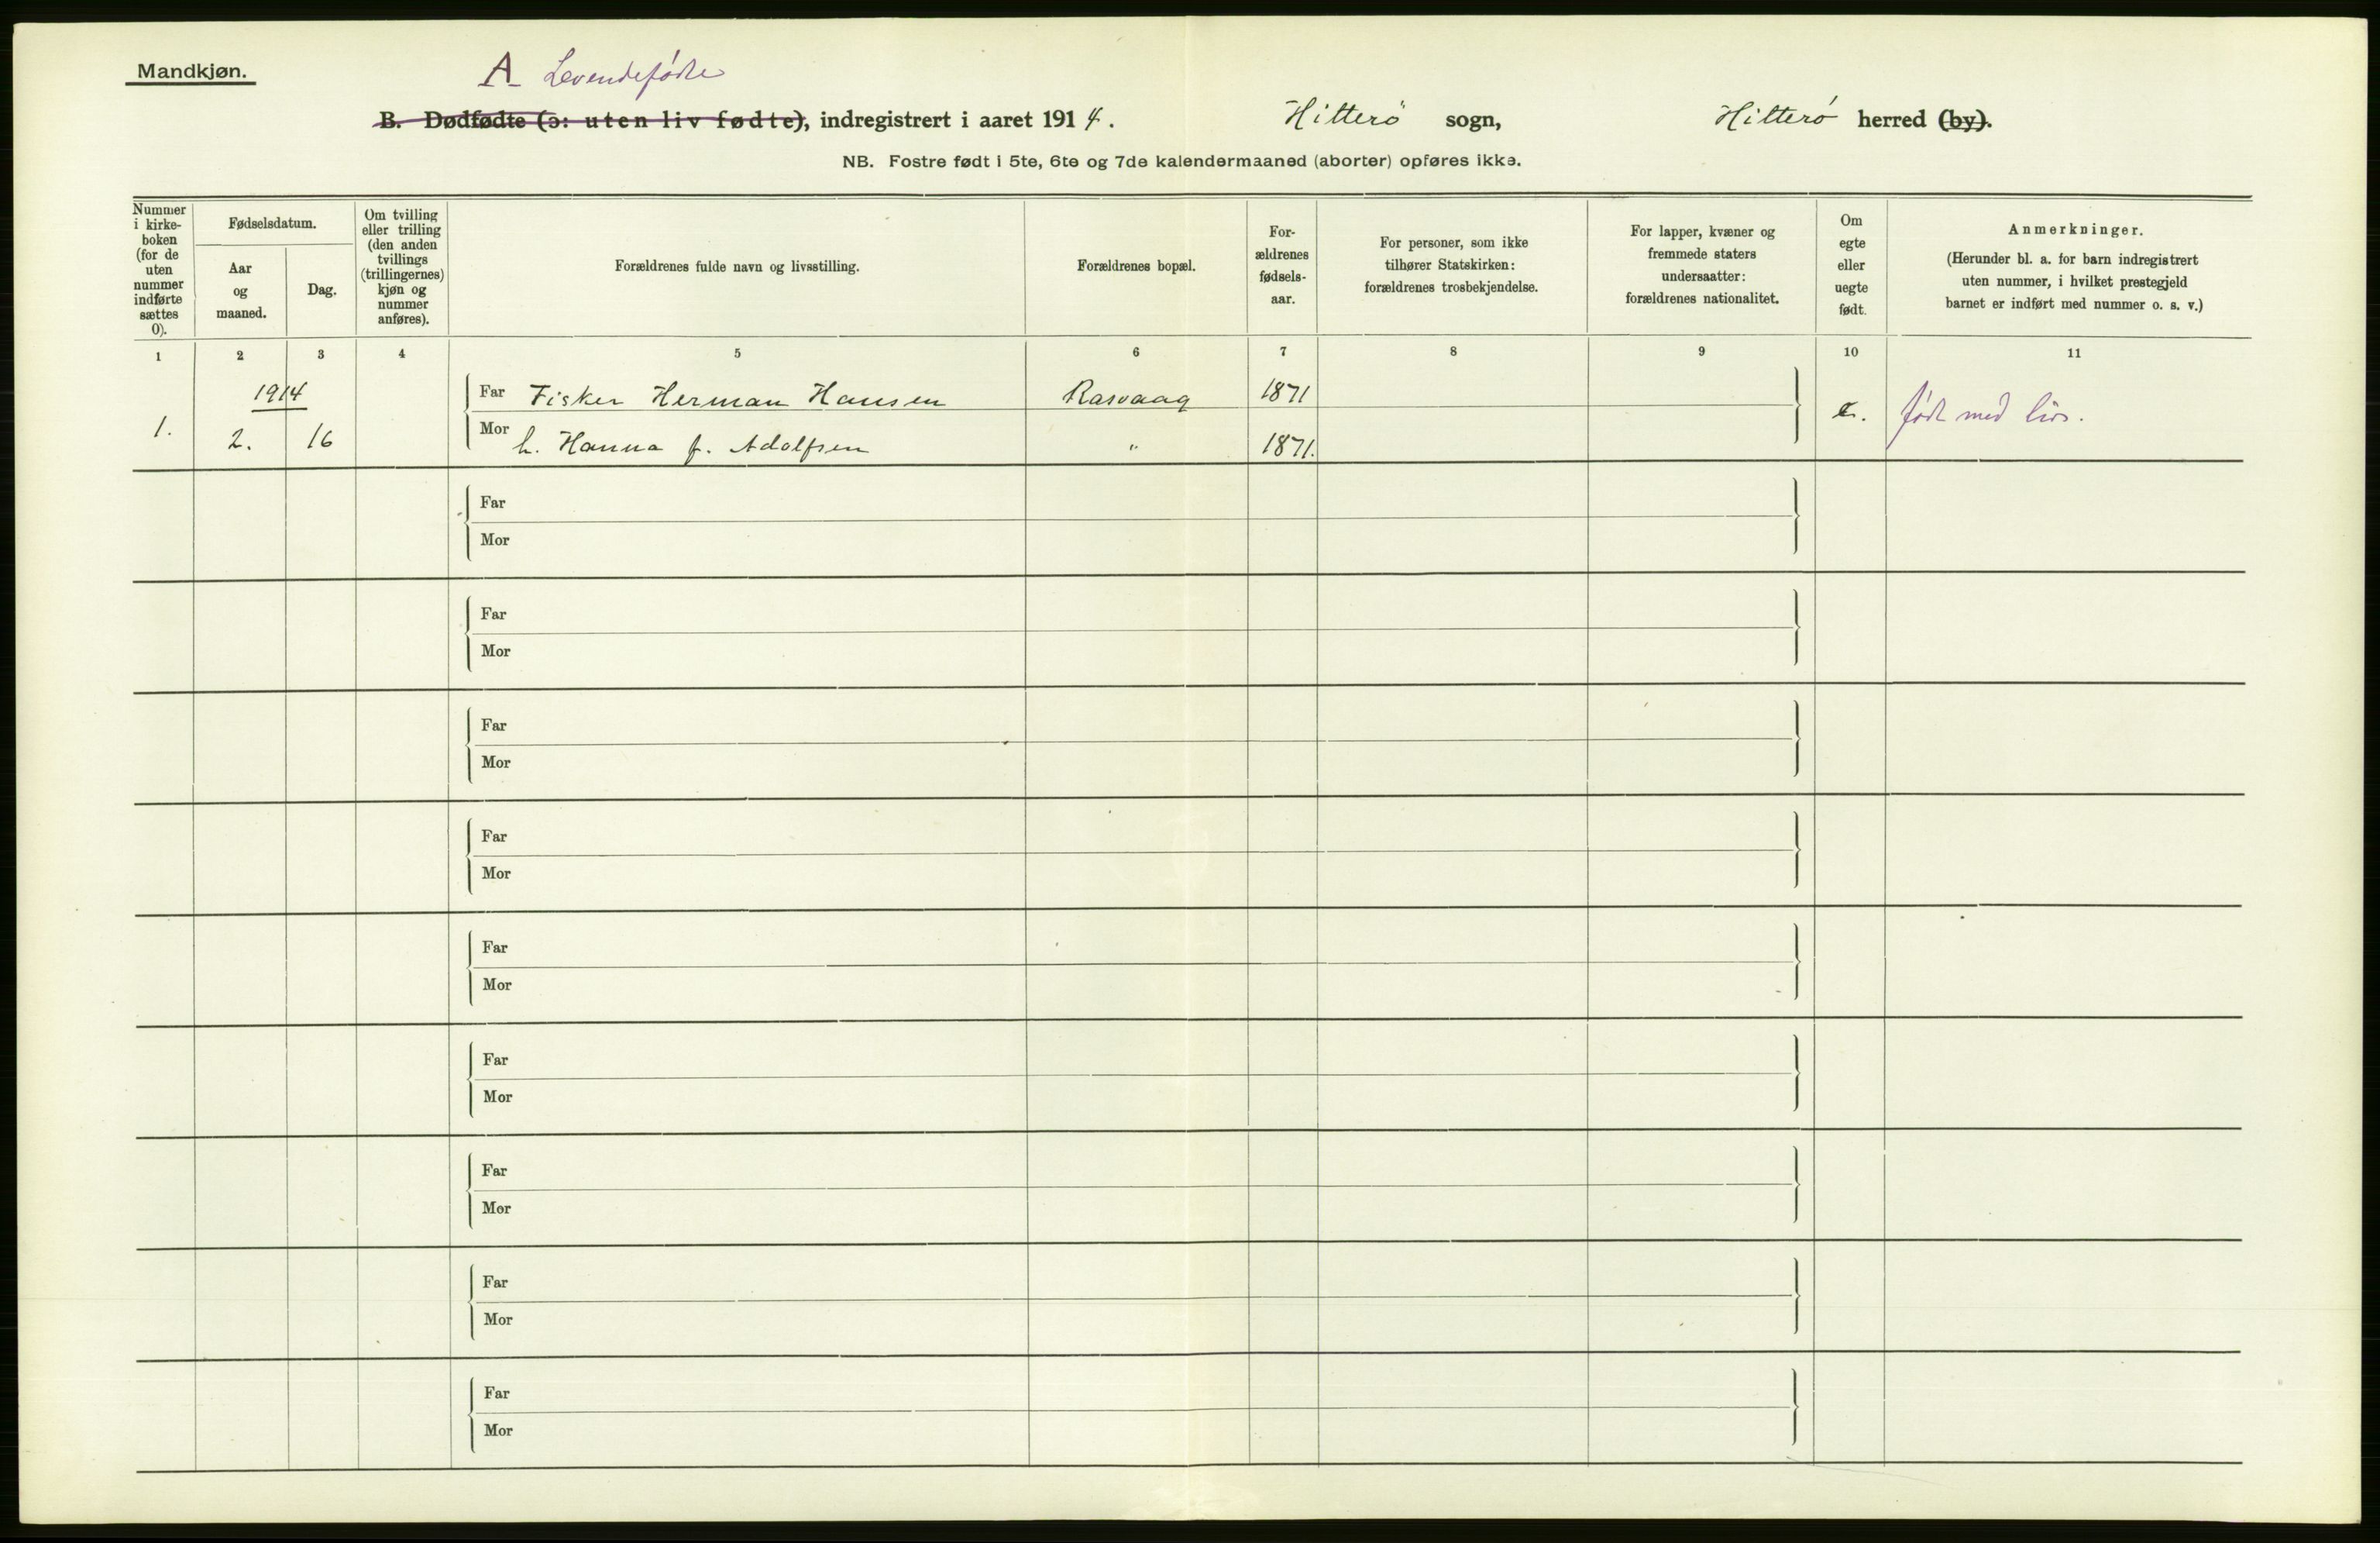 Mandkjøn.
A Levendefødte
B. Dødfødte (ɔ: uten liv fødte), indregistrert i aaret 1914. Hitterö sogn, Hitterö herred (by).
NB. Fostre født i 5te, 6te og 7de kalendermaaned (aborter) opføres ikke.
Nummer
i kirke-
boken
(for de
uten
nummer
indførte
sættes
0).
Fødselsdatum.
Aar
og
maaned.
Dag.
Om tvilling
eller trilling
(den anden
tvillings
(trillingernes)
kjøn og
nummer
anføres).
Forældrenes fulde navn og livsstilling.
Forældrenes bopæl.
For-
ældrenes
fødsels-
aar.
For personer, som ikke
tilhører Statskirken:
forældrenes trosbekjendelse.
For lapper, kvæner og
fremmede staters
undersaatter:
forældrenes nationalitet.
Om
egte
eller
uegte
født.
Anmerkninger.
(Herunder bl. a. for barn indregistrert
uten nummer, i hvilket prestegjeld
barnet er indført med nummer o. s. v.)
1 2 3 4 5 6 7 8 9 10 11
1914
Far Fisker Herman Hansen Rasvaag 1871
1. 2. 16 e. født med liv.
Mor h. Hanna f. Adolfsen " 1871.
Far
Mor
Far
Mor
Far
Mor
Far
Mor
Far
Mor
Far
Mor
Far
Mor
Far
Mor
Far
Mor